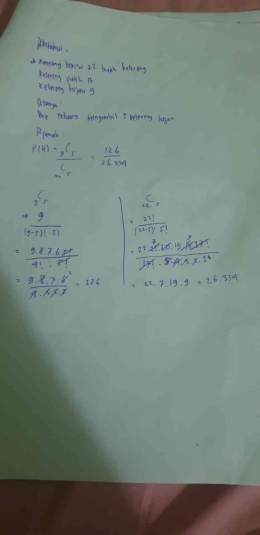 Diketahui :
Kantong berisi 22 buah kelereng
Kelereng putih 13
Kelereng hijau 9
Ditanya :
Peluang mengambil 5 kelereng hijau
Dijawab :
P(H) = 9C5 / 22C5 = 126 / 26.334
9C5
= 9! / (9-5)! . 5!
= 9.8.7.6.5! / 4! . 5!
= 9.8.7.6 / 4.3.2.1 = 126
22C5
= 22! / (22-5)! 5!
= 22.7.19.9 = 26.334